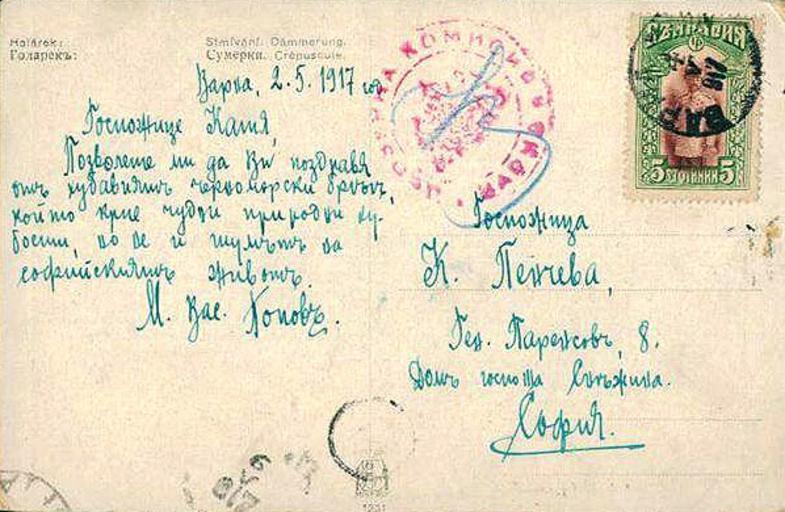 Holárek:
Голарекъ:
Stmívání. Dämmerung.
Сумерки. Crépuscule.
Варна, 2.5.1917 год
Госпожице Катя,
Позволете ми да Ви поздравя
отъ хубавиятъ черноморски брѣгъ,
който крие чудни природни ху-
бости, но не и шумътъ на
софийскиятъ животъ.
М. Вас. Поповъ.
ВОЕННА КОМИСИЯ
ВАРНА
БЪЛГАРИЯ
5 СТОТИНКИ 5
ВАР
Госпожица
К. Пенчева,
Ген. Паренсовъ, 8.
Домъ госпожа
София.
1231